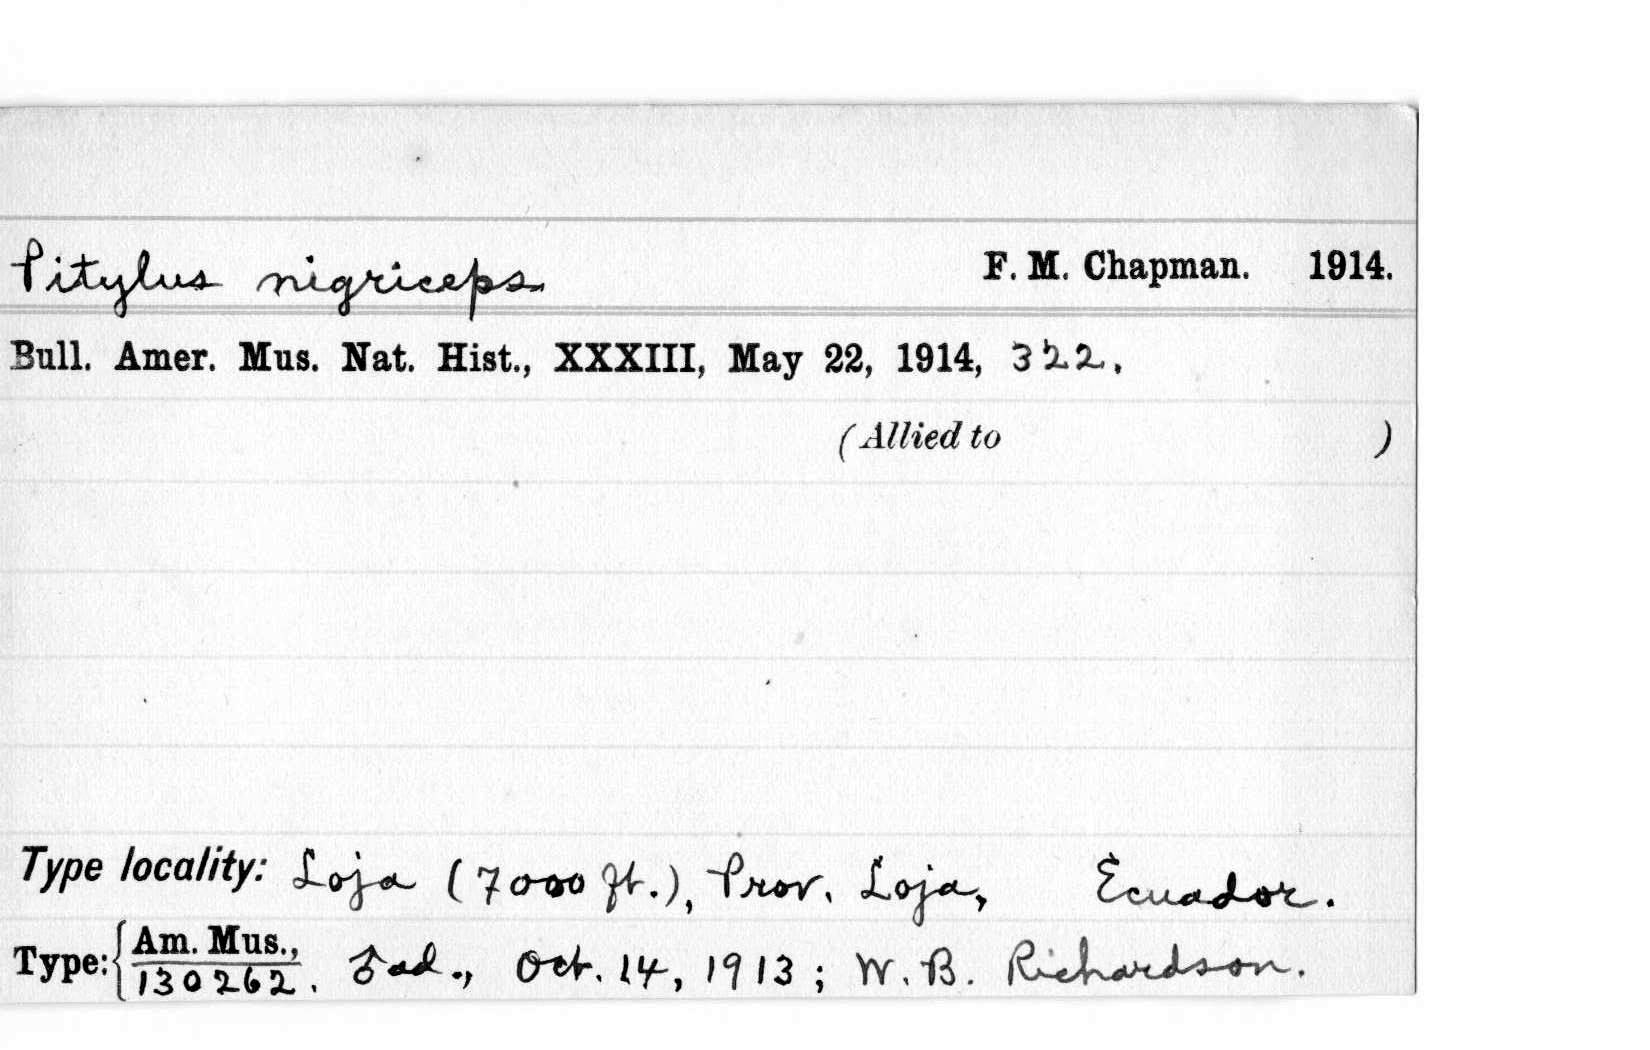 Pitylus nigriceps F. M. Chapman. 1914.
Bull. Amer. Mus. Nat. Hist., XXXIII, May 22, 1914, 322.
(Allied to )
Type locality: Loja (7000 ft.), Prov. Loja, Ecuador.
Type: { Am. Mus., 130262. ♂ ad., Oct. 14, 1913; W. B. Richardson.